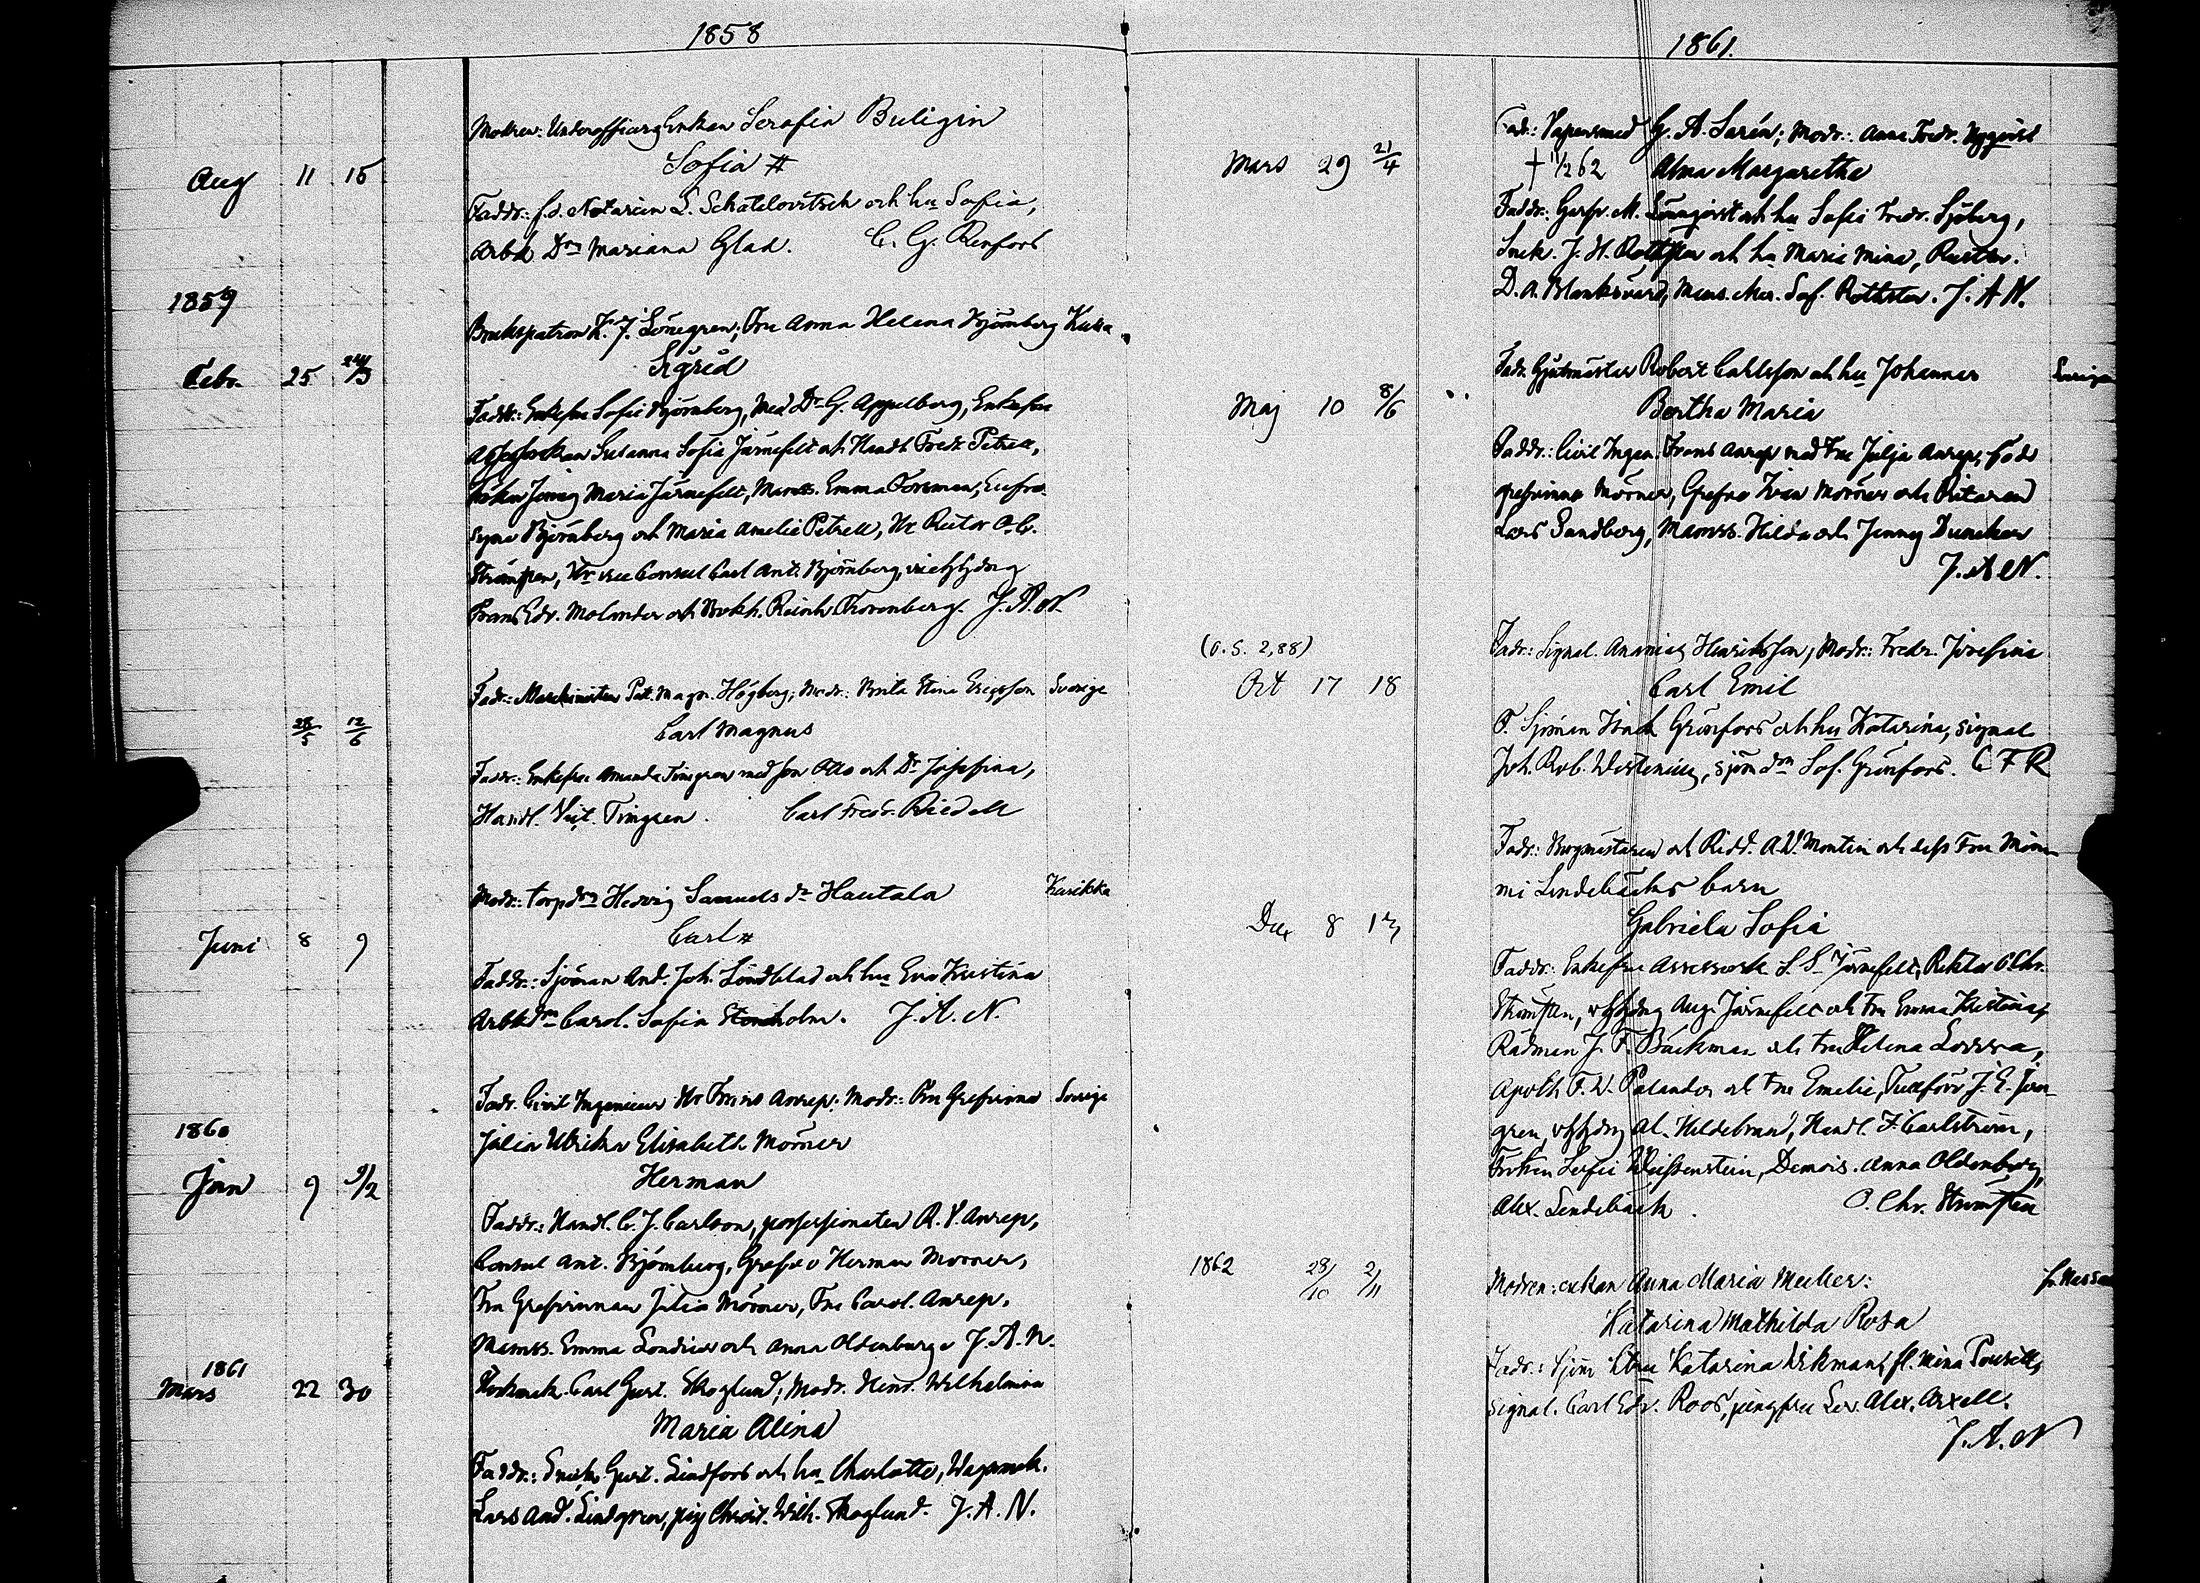 1858
Modren: Underofficers Enkan Serafia Buligin
Aug 11 15 Sofia #
Faddr: f.d. Notarien S. Schatelovitsch och hu Sofia,
Arbk Drn Mariana Glad. C. G. Renfors
1859
Brukspatron J. Lönegren; Fru Anna Helena Björnberg
Febr. 25 24/3 Sigrid
Faddr: Enkefru Sofie Björnberg, Med Dr G. Appelberg, Enkefru
Susanna Sofia Järnefelt och Handl Fredr Petrell,
Maria Järnefelt, Mamss. Emma Forsman, Eufro-
syne Björnberg och Maria Amelie Petrell, Hr Rector O. C.
Strömsten, Hr vice Consul Carl Ant. Björnberg,
Frans Edv. Molander och Bokh. Reinh Thorenberg. J. A. N.
Fadr: Maschinisten Pet. Magn. Högberg; Modr: Brita Stina Ericsson Sverige
28/5 12/6 Carl Magnus
Faddr: Enkefru Amanda Timgren med son Otto och Dr Josefina,
Handl. Timgren. Carl Fredr. Riedell
Modr: torpdrn Hedvig Samuels dr Hautala
Juni 8 9 Carl #
Faddr: Sjöman And. Joh. Söndblad och hu Eva Kristina
Arbk drn Carol. Sofia Stenholm. J. A. N.
Fadr. Civil Ingenieur Hr Frans Anrep; Modr: Fru Grefvinna Sverige
1860
Julia Ulrika Elisabeth Mörner
Jan 9 9/2 Herman
Faddr: Handl. C. J. Carlson, possessionaten R. V. Anrep,
Consul Ant. Björnberg, Grefve Herman Mörner,
Fru Grefvinnan Julia Mörner, Fru Carol. Anrep,
Mamss. Emma och Anna Oldenburg. J. A. N.
1861
Mars 22 30 Carl Gust. Skoglund; Modr. Wilhelmina
Maria Alina
Faddr: Gust. Lindfors och hu Charlotte, Wagnmak.
Lars And. Lindgren, pig Christ. Wilh. Skoglund. J. A. N.
1861.
Fadr: Vapensmed G. A. Sarén; Modr: Anna Fredr. Nyqvist
Mars 29 21/4 † 11/2 62 Alma Margaretha
Faddr: M. Lönnqvist och hu Sofia Fredr. Sjöberg,
Snick. J. H. Rothsten och hu Maria Mina,
D. A. Sof. Rothsten. J. A. N.
Fadr Gjutmästar Robert Carlsson och hu Johanna Sverige
Maj 10 8/6 Bertha Maria
Faddr: Civil Ingen. Frans Anrep med Fru Julja Anrep, född
grefvinna Mörner, Grefve Ivan Mörner och Ritaren
Lars Sandberg, Mamss. Hilda och Jenny Duncker
J. A. N.
(O. S. 2,88)
Fadr: Signal. Ananias Henriksson; Modr: Fredr. Josefina
Oct 17 18 Carl Emil
F. Sjöman Isack Grönfors och hu Katarina, signal
Joh. Rob. Westenius, sjöm drn Sof. Grönfors. C F R
Fadr: Borgmästaren och Ridd. A. V. Montin och dess Fru Mim-
mi Lindebäcks barn
Dec 8 13 Gabriela Sofia
Faddr: Enkefru Assessorsk. S. S. Järnefelt, Rektor O Chr.
Strömsten, Aug. Järnefelt och Fru Emma Kristina,
Rådman J. F. Bäckman och Fru Helena Lovisa,
Apoth. F. W. Palander och Fru Emelie, Tullförv J. E. Jan-
gren, Al. Hildebrand, Handl. F. Carlström,
Fröken Sofie Weissenstein, Demois. Anna Oldenburg,
Alex. Lindebäck. O. Chr. Strömsten
1862 28/10 2/11 Modren: enkan Anna Maria Mecher:
Katarina Mathilda Rosa
Fadr: Sjöm Katarina Wikman, fl. Mina Pourell,
Signal. Carl Edv. Roos, jungfru Alex. Axell.
J. A. N